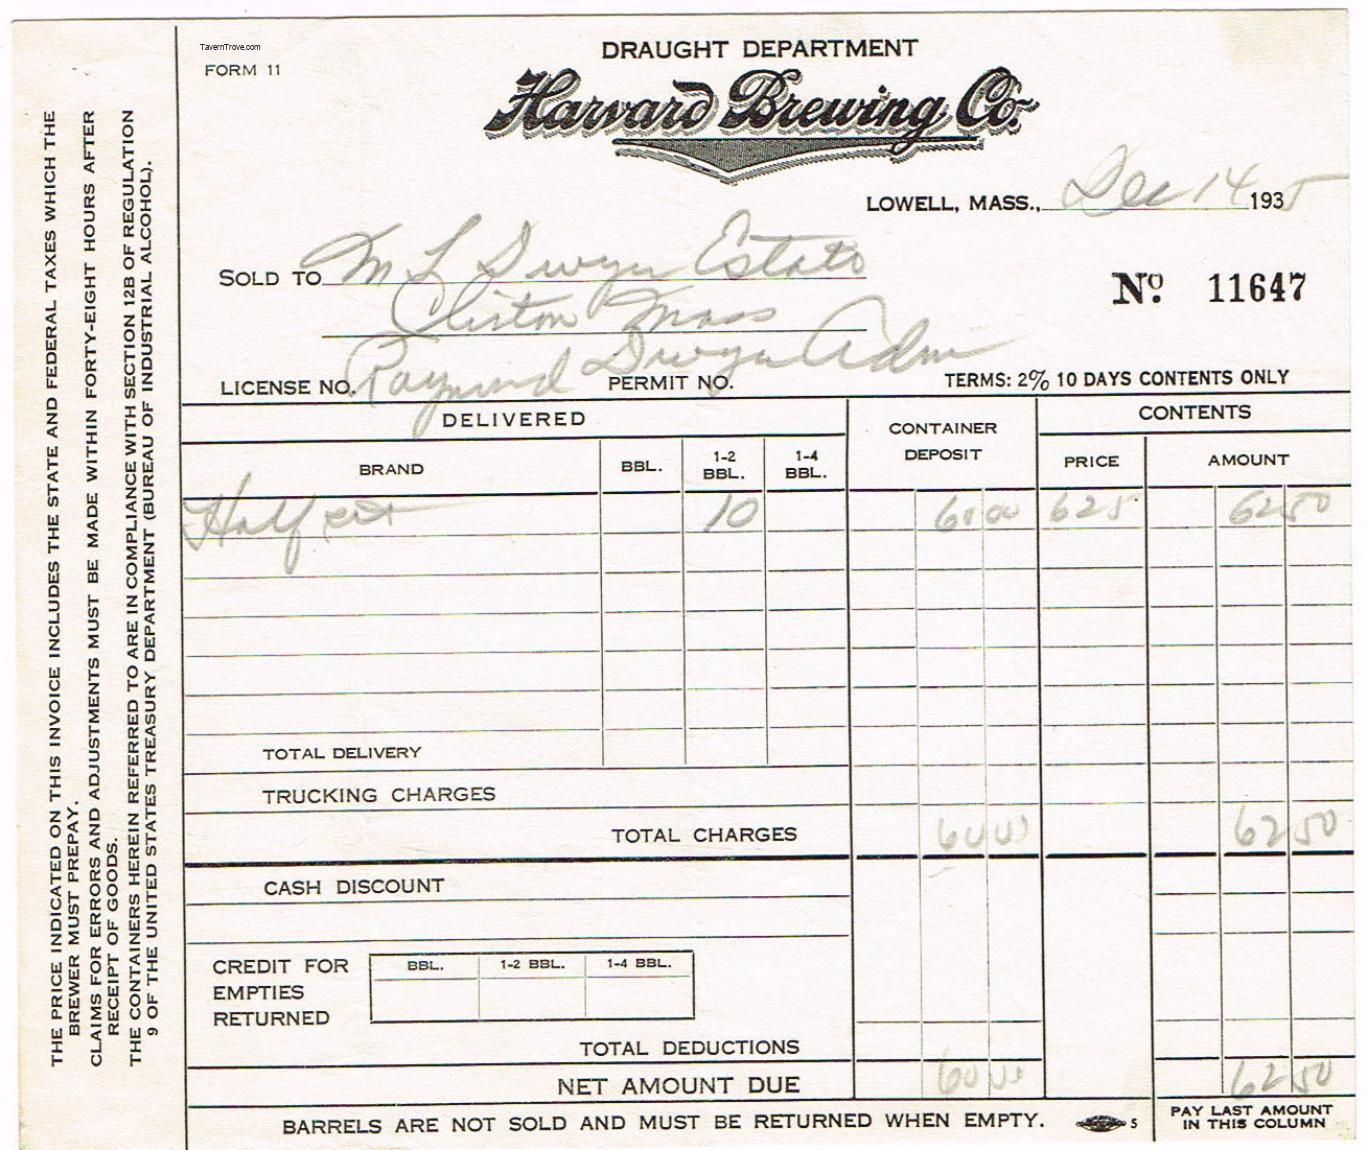 TavernTrove.com
FORM 11
DRAUGHT DEPARTMENT
Harvard Brewing Co.
LOWELL, MASS., Dec 14 1935
SOLD TO M L Dwyer Estate
Clinton Mass
Raymond Dwyer Adm
No. 11647
LICENSE NO. PERMIT NO. TERMS: 2% 10 DAYS CONTENTS ONLY
DELIVERED CONTAINER DEPOSIT CONTENTS
BRAND BBL. 1-2 BBL. 1-4 BBL. PRICE AMOUNT
Half 10 60 00 625 62 50
TOTAL DELIVERY
TRUCKING CHARGES
TOTAL CHARGES 60 00 62 50
CASH DISCOUNT
CREDIT FOR EMPTIES RETURNED BBL. 1-2 BBL. 1-4 BBL.
TOTAL DEDUCTIONS
NET AMOUNT DUE 60 00 62 50
BARRELS ARE NOT SOLD AND MUST BE RETURNED WHEN EMPTY. 5
PAY LAST AMOUNT
IN THIS COLUMN
THE PRICE INDICATED ON THIS INVOICE INCLUDES THE STATE AND FEDERAL TAXES WHICH THE
BREWER MUST PREPAY.
CLAIMS FOR ERRORS AND ADJUSTMENTS MUST BE MADE WITHIN FORTY-EIGHT HOURS AFTER
RECEIPT OF GOODS.
THE CONTAINERS HEREIN REFERRED TO ARE IN COMPLIANCE WITH SECTION 12B OF REGULATION
9 OF THE UNITED STATES TREASURY DEPARTMENT (BUREAU OF INDUSTRIAL ALCOHOL).